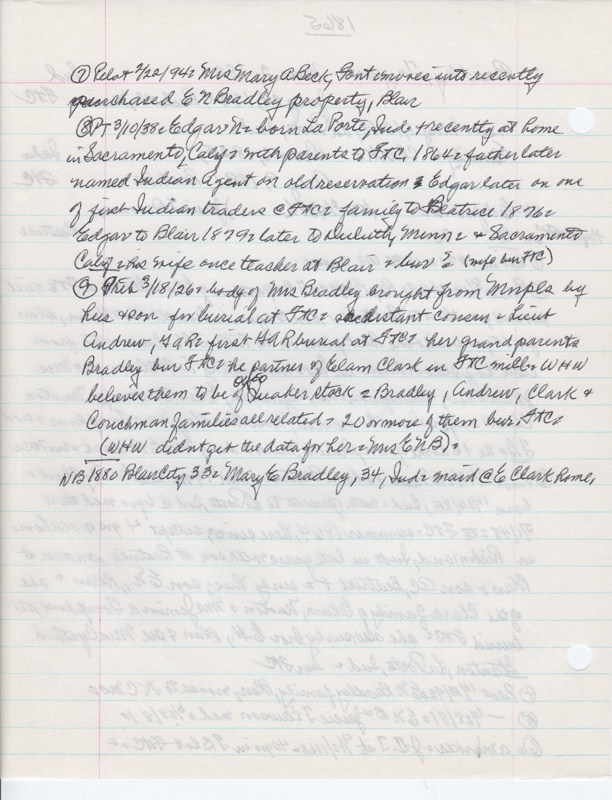 1865
⑦ Pilot 2/22/94= Mrs Mary A Beck, Font moves into recently
purchased E N Bradley property, Blair
⑧ PT 3/10/38= Edgar N= born La Porte, Ind + recently at home
in Sacramento, Calif= with parents to FtC, 1864= father later
named Indian Agent on old reservation = Edgar later on one
of first Indian traders @ FtC= family to Beatrice 1876=
Edgar to Blair 1879= later to Duluth, Minn= + Sacramento
Calif= his wife once teacher at Blair = bur ? = (wife bur FtC)
⑨ 3/18/26= body of Mrs Bradley brought from Mnpls by
hus + son for burial at FtC= distant cousin = Lieut
Andrew, GAR= first GAR burial at FtC= her grand parents
Bradley bur FtC= he partner of Elam Clark in FtC mill= WHW
believes them to be of Quaker stock = Bradley, Andrew, Clark +
Couchman families all related = 20 or more of them bur. FtC=
(WHW didnt get the data for her = Mrs E N B)=
NB 1880 Blair City 33= Mary E Bradley, 34, Ind= maid @ E Clark home,